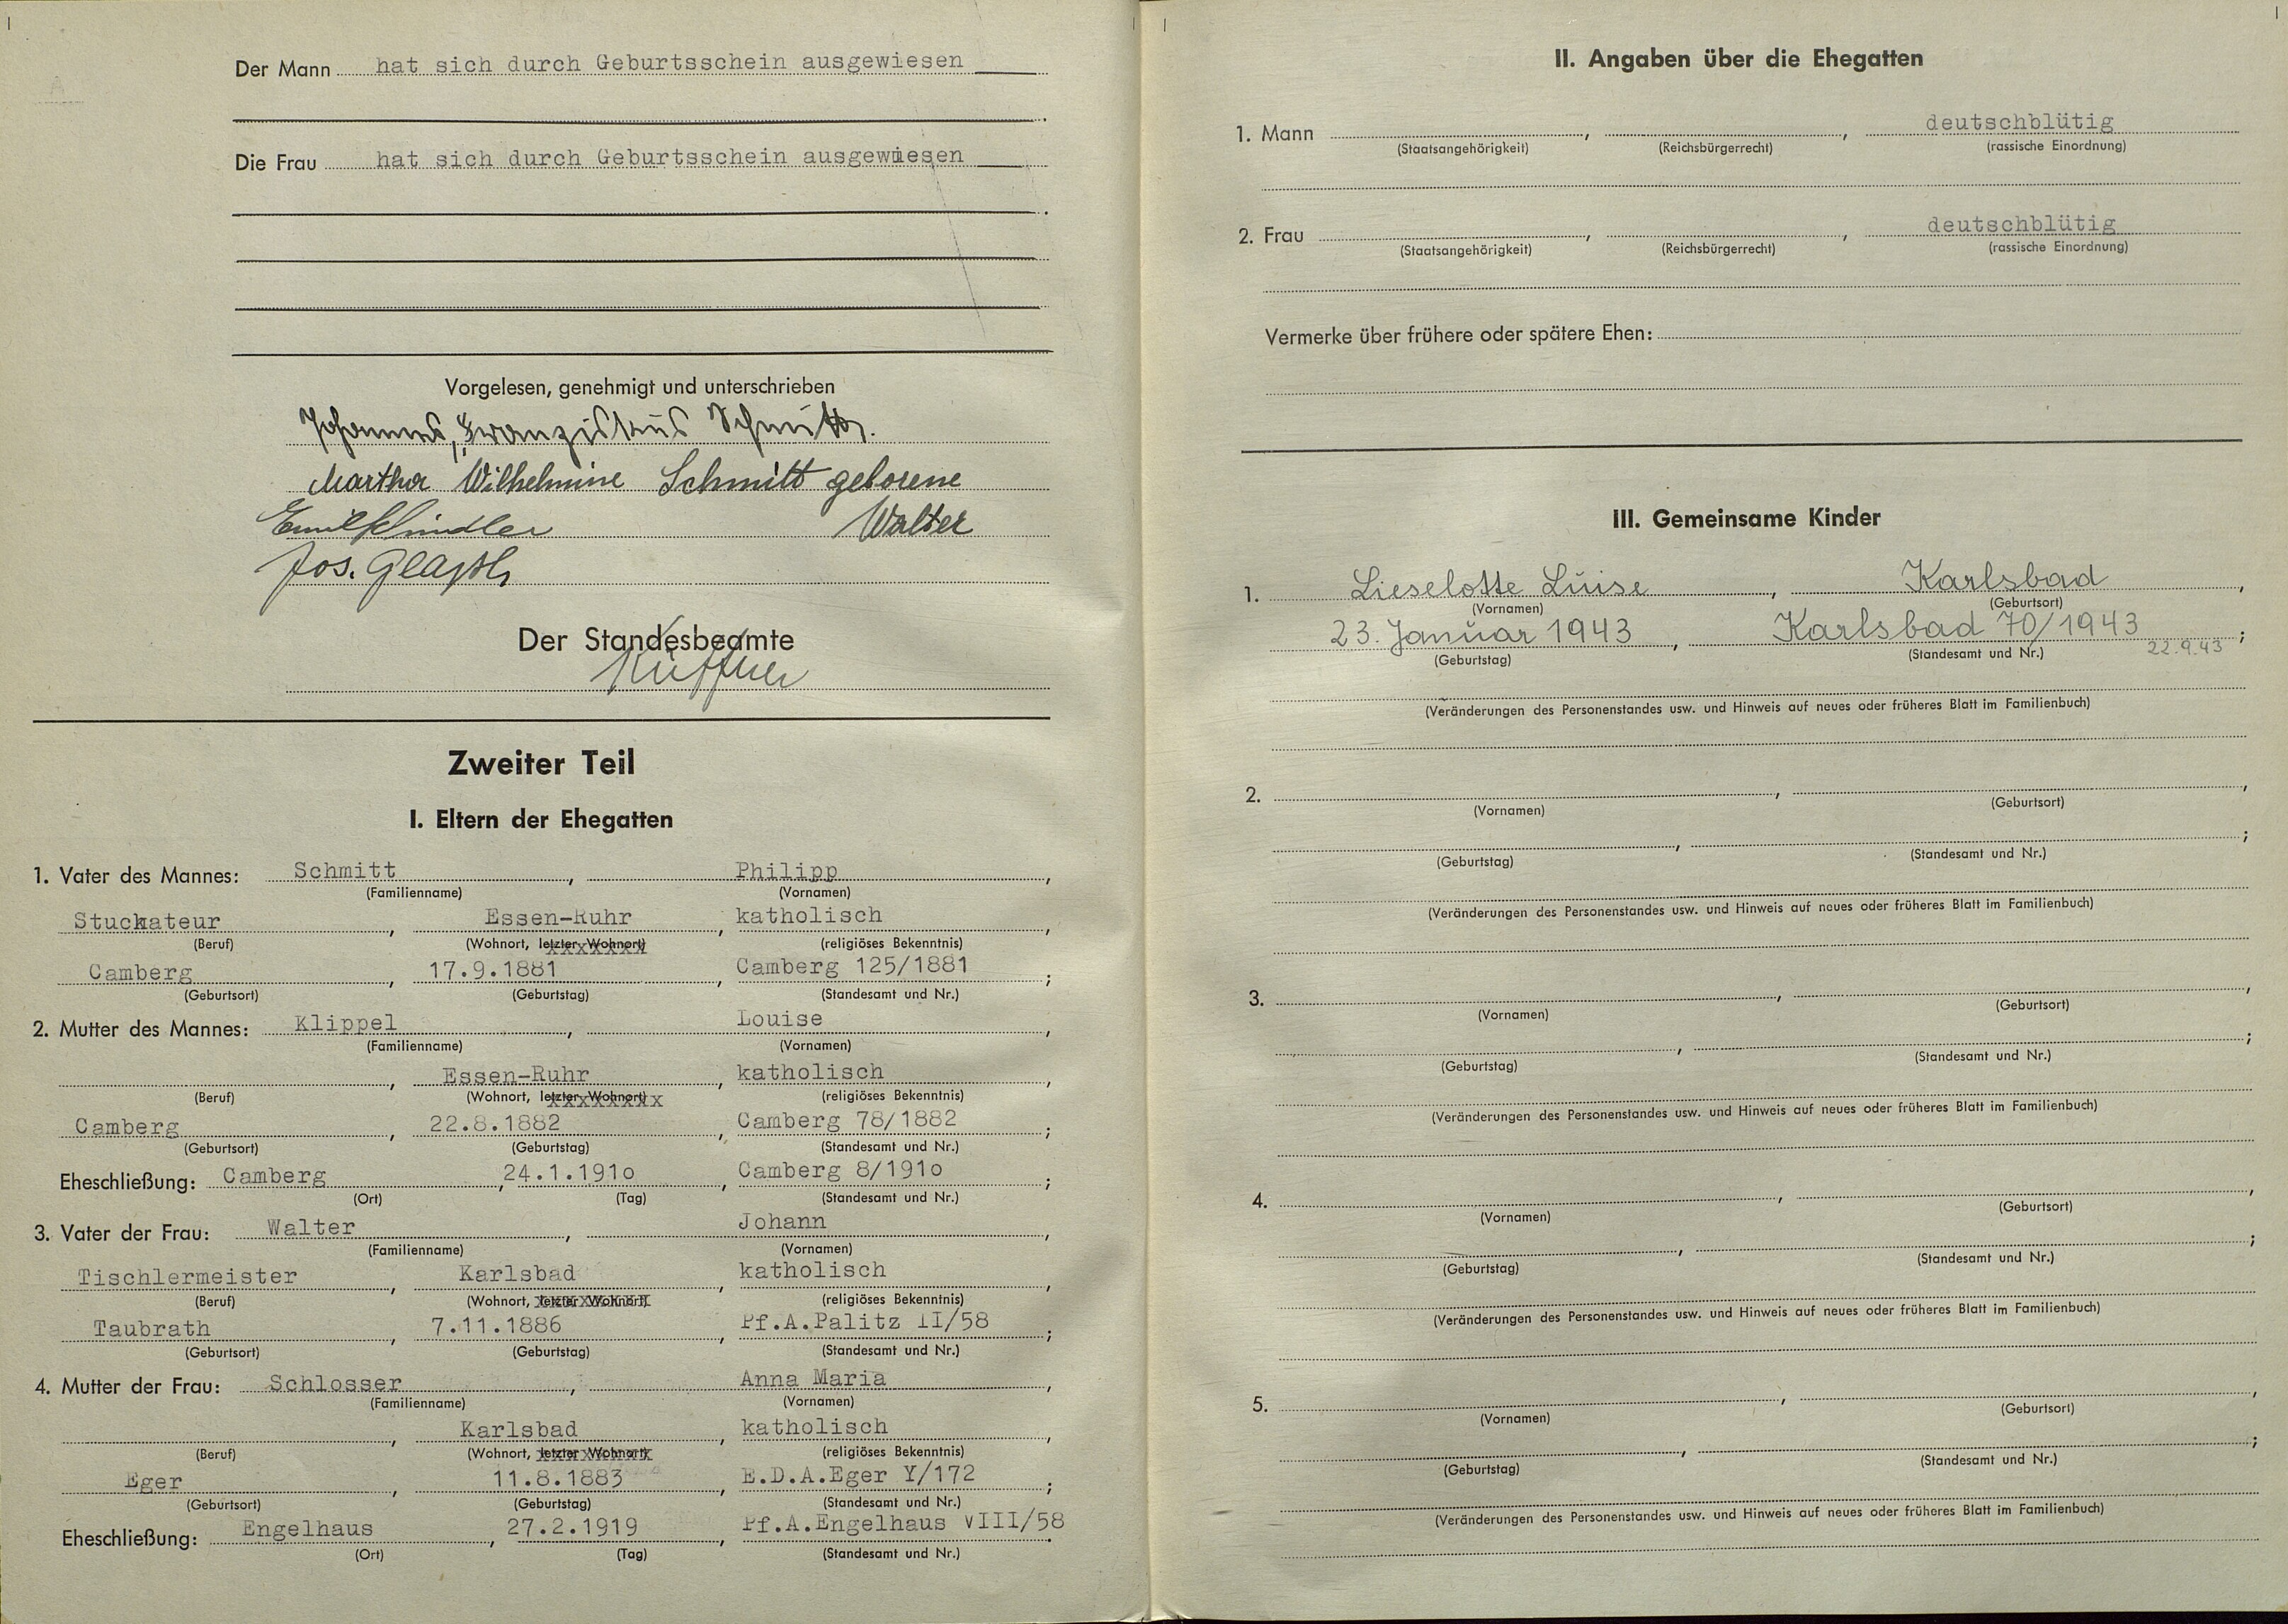 Der Mann hat sich durch Geburtsschein ausgewiesen
Die Frau hat sich durch Geburtsschein ausgewiesen
Vorgelesen, genehmigt und unterschrieben
Johannes, Franziskus Schmitt.
Martha Wilhelmine Schmitt geborene
Emil Schindler Walter
Jos.
Der Standesbeamte
Küffner
Zweiter Teil
I. Eltern der Ehegatten
1. Vater des Mannes: Schmitt, Philipp,
(Familienname) (Vornamen)
Stuckateur, Essen-Ruhr, katholisch,
(Beruf) (Wohnort, letzter Wohnort) (religiöses Bekenntnis)
Camberg, 17.9.1881, Camberg 125/1881;
(Geburtsort) (Geburtstag) (Standesamt und Nr.)
2. Mutter des Mannes: Klippel, Louise,
(Familienname) (Vornamen)
, Essen-Ruhr, katholisch,
(Beruf) (Wohnort, letzter Wohnort) (religiöses Bekenntnis)
Camberg, 22.8.1882, Camberg 78/1882;
(Geburtsort) (Geburtstag) (Standesamt und Nr.)
Eheschließung: Camberg, 24.1.191o, Camberg 8/191o;
(Ort) (Tag) (Standesamt und Nr.)
3. Vater der Frau: Walter, Johann,
(Familienname) (Vornamen)
Tischlermeister, Karlsbad, katholisch,
(Beruf) (Wohnort, letzter Wohnort) (religiöses Bekenntnis)
Taubrath, 7.11.1886, Pf.A.Palitz II/58;
(Geburtsort) (Geburtstag) (Standesamt und Nr.)
4. Mutter der Frau: Schlosser, Anna Maria,
(Familienname) (Vornamen)
, Karlsbad, katholisch,
(Beruf) (Wohnort, letzter Wohnort) (religiöses Bekenntnis)
Eger, 11.8.1883, E.D.A.Eger Y/172;
(Geburtsort) (Geburtstag) (Standesamt und Nr.)
Eheschließung: Engelhaus, 27.2.1919, Pf.A.Engelhaus VIII/58.
(Ort) (Tag) (Standesamt und Nr.)
II. Angaben über die Ehegatten
1. Mann , , deutschblütig
(Staatsangehörigkeit) (Reichsbürgerrecht) (rassische Einordnung)
2. Frau , , deutschblütig
(Staatsangehörigkeit) (Reichsbürgerrecht) (rassische Einordnung)
Vermerke über frühere oder spätere Ehen:
III. Gemeinsame Kinder
1. Lieselotte Luise, Karlsbad,
(Vornamen) (Geburtsort)
23. Januar 1943, Karlsbad 70/1943 22.9.43;
(Geburtstag) (Standesamt und Nr.)
(Veränderungen des Personenstandes usw. und Hinweis auf neues oder früheres Blatt im Familienbuch)
2. , ,
(Vornamen) (Geburtsort)
, ;
(Geburtstag) (Standesamt und Nr.)
(Veränderungen des Personenstandes usw. und Hinweis auf neues oder früheres Blatt im Familienbuch)
3. , ,
(Vornamen) (Geburtsort)
, ;
(Geburtstag) (Standesamt und Nr.)
(Veränderungen des Personenstandes usw. und Hinweis auf neues oder früheres Blatt im Familienbuch)
4. , ,
(Vornamen) (Geburtsort)
, ;
(Geburtstag) (Standesamt und Nr.)
(Veränderungen des Personenstandes usw. und Hinweis auf neues oder früheres Blatt im Familienbuch)
5. , ,
(Vornamen) (Geburtsort)
, ;
(Geburtstag) (Standesamt und Nr.)
(Veränderungen des Personenstandes usw. und Hinweis auf neues oder früheres Blatt im Familienbuch)